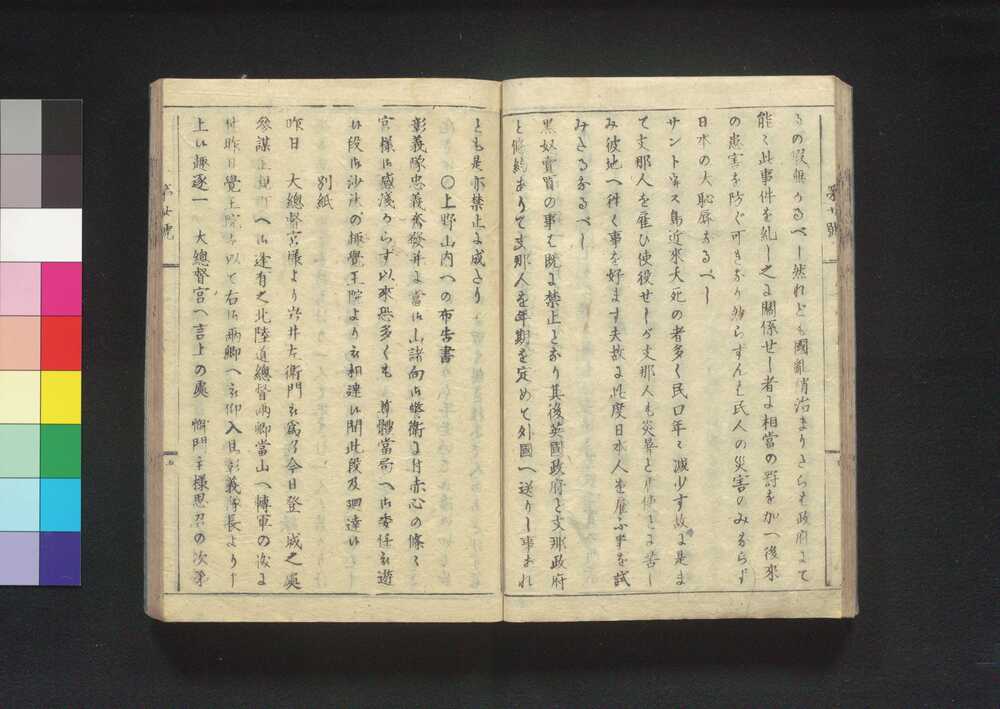 るの暇無かるべし然れども國亂稍治まりさらば政府にて
能く此事件を糺し之に關係せし者に相當の罸を加へ後來
の患害を防ぐ可きなり然らずんば民人の災害のみならず
日本の大恥辱なるべし
サントーウス島近來夭死の者多く民口年々減少す故に是ま
て支那人を雇ひ使役せしが支那人も炎暑と使に苦し
み彼地へ徃く事を好ます夫故に此度日本人を雇ふ事を試
みたるなるべし
黒奴賣買の事は既に禁止となり其後英國政府と支那政府
と條約ありて支那人を年期を定めて外國へ送りし事あれ
第廿號
とも是亦禁止に成たり
○上野山内への布告書
彰義隊忠義奮發并に當御山諸向御警衛に付赤心の條々
宮樣御感淺からず以來恐多くも尊體當局へ御委任被遊
候段御沙汰の趣覺王院より被相達候間此段及廻達候
別紙
昨日 大總督宮樣より岩井左衛門被爲召今日登城之處
參謀正親町へ御逢有之北陸道總督兩卿當山へ轉軍の後に
付昨日覺王院を以て右御兩卿へ被仰入且彰義隊長より申
上候趣逐一 大總督宮へ言上の處 御門主樣思召の次第
第廿號
七